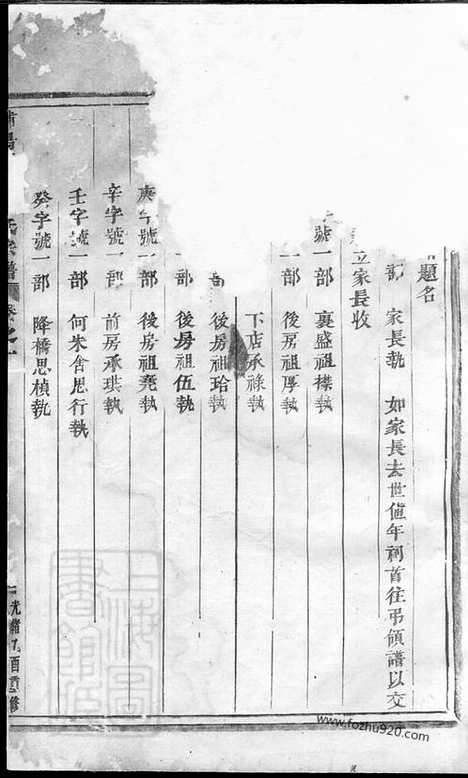 題名
部 家長執 如家長去世值年祠首往弔領譜以交
立家長收
號一部 裏盛祖樑執
一部 後房祖厚執
下店承祿執
後房祖珆執
部 後房祖伍執
庚字號一部 後房祖堯執
辛字號一部 前房承琪執
壬字號一部 何朱舍思行執
癸字號一部 降橋思楨執
氏宗譜
光緒乙酉重修
上海圖書館藏
www.fozhu920.com